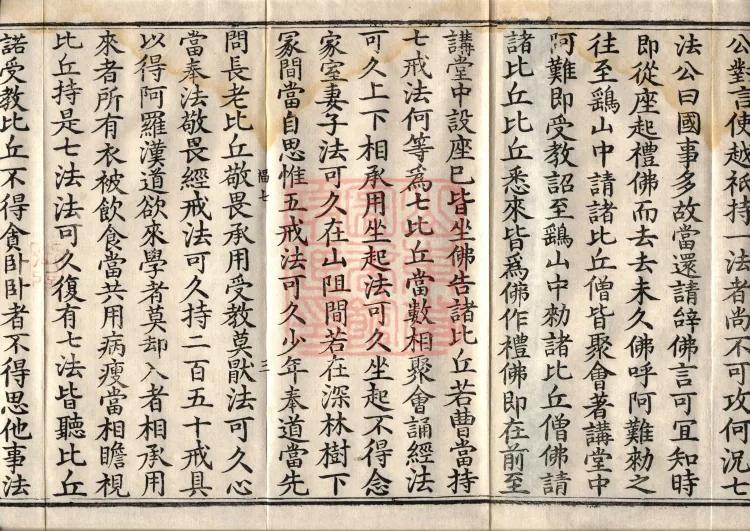 公對言使越祇持一法者尚不可攻何況七
法公曰國事多故當還請辝佛言可冝知時
即從座起禮佛而去去未久佛呼阿難勑之
往至鷄山中請諸比丘僧皆聚會著講堂中
阿難即受教詔至鷄山中勑諸比丘僧佛請
諸比丘比丘悉來皆爲佛作禮佛即在前至
講堂中設座已皆坐佛告諸比丘若曹當持
七戒法何等爲七比丘當數相聚會誦經法
可久上下相承用坐起法可久坐起不得念
家室妻子法可久在山阻間若在深林樹下
冡間當自思惟五戒法可久少年奉道當先
問長老比丘敬畏承用受教莫猒法可久心
福七 三
當奉法敬畏經戒法可久持二百五十戒具
以得阿羅漢道欲來學者莫却入者相承用
來者所有衣被飲食當共用病瘦當相瞻視
比丘持是七法法可久復有七法皆聽比丘
諾受教比丘不得貪卧卧者不得思他事法